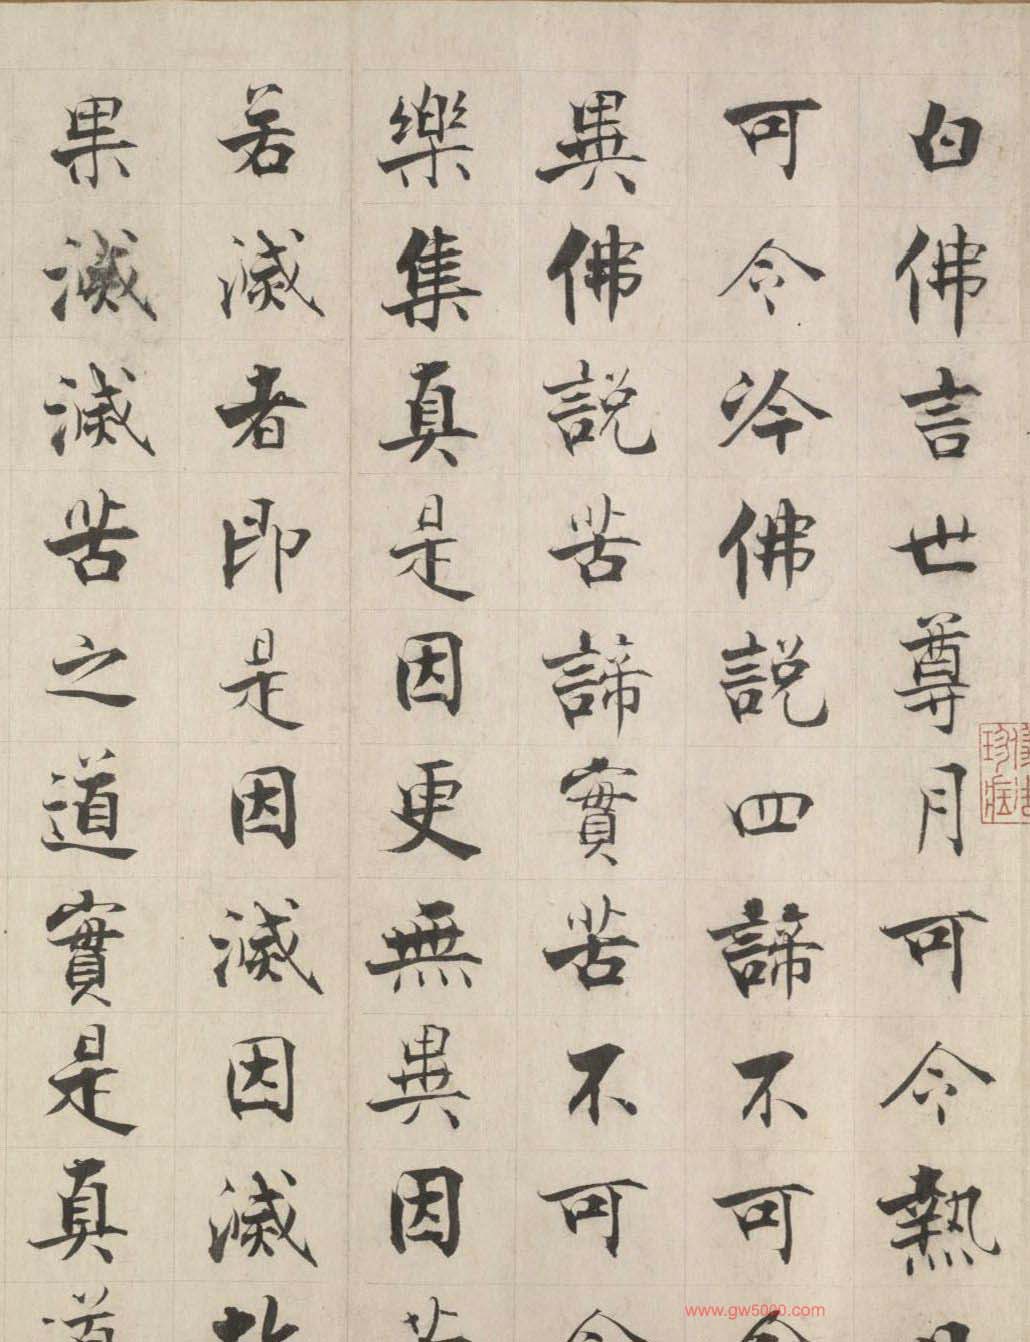 白佛言世尊月可令熱
可令冷佛説四諦不可令
異佛説苦諦實苦不可令
樂集真是因更無異因苦
若滅者即是因滅因滅故
果滅滅苦之道實是真道
www.gw5000.com